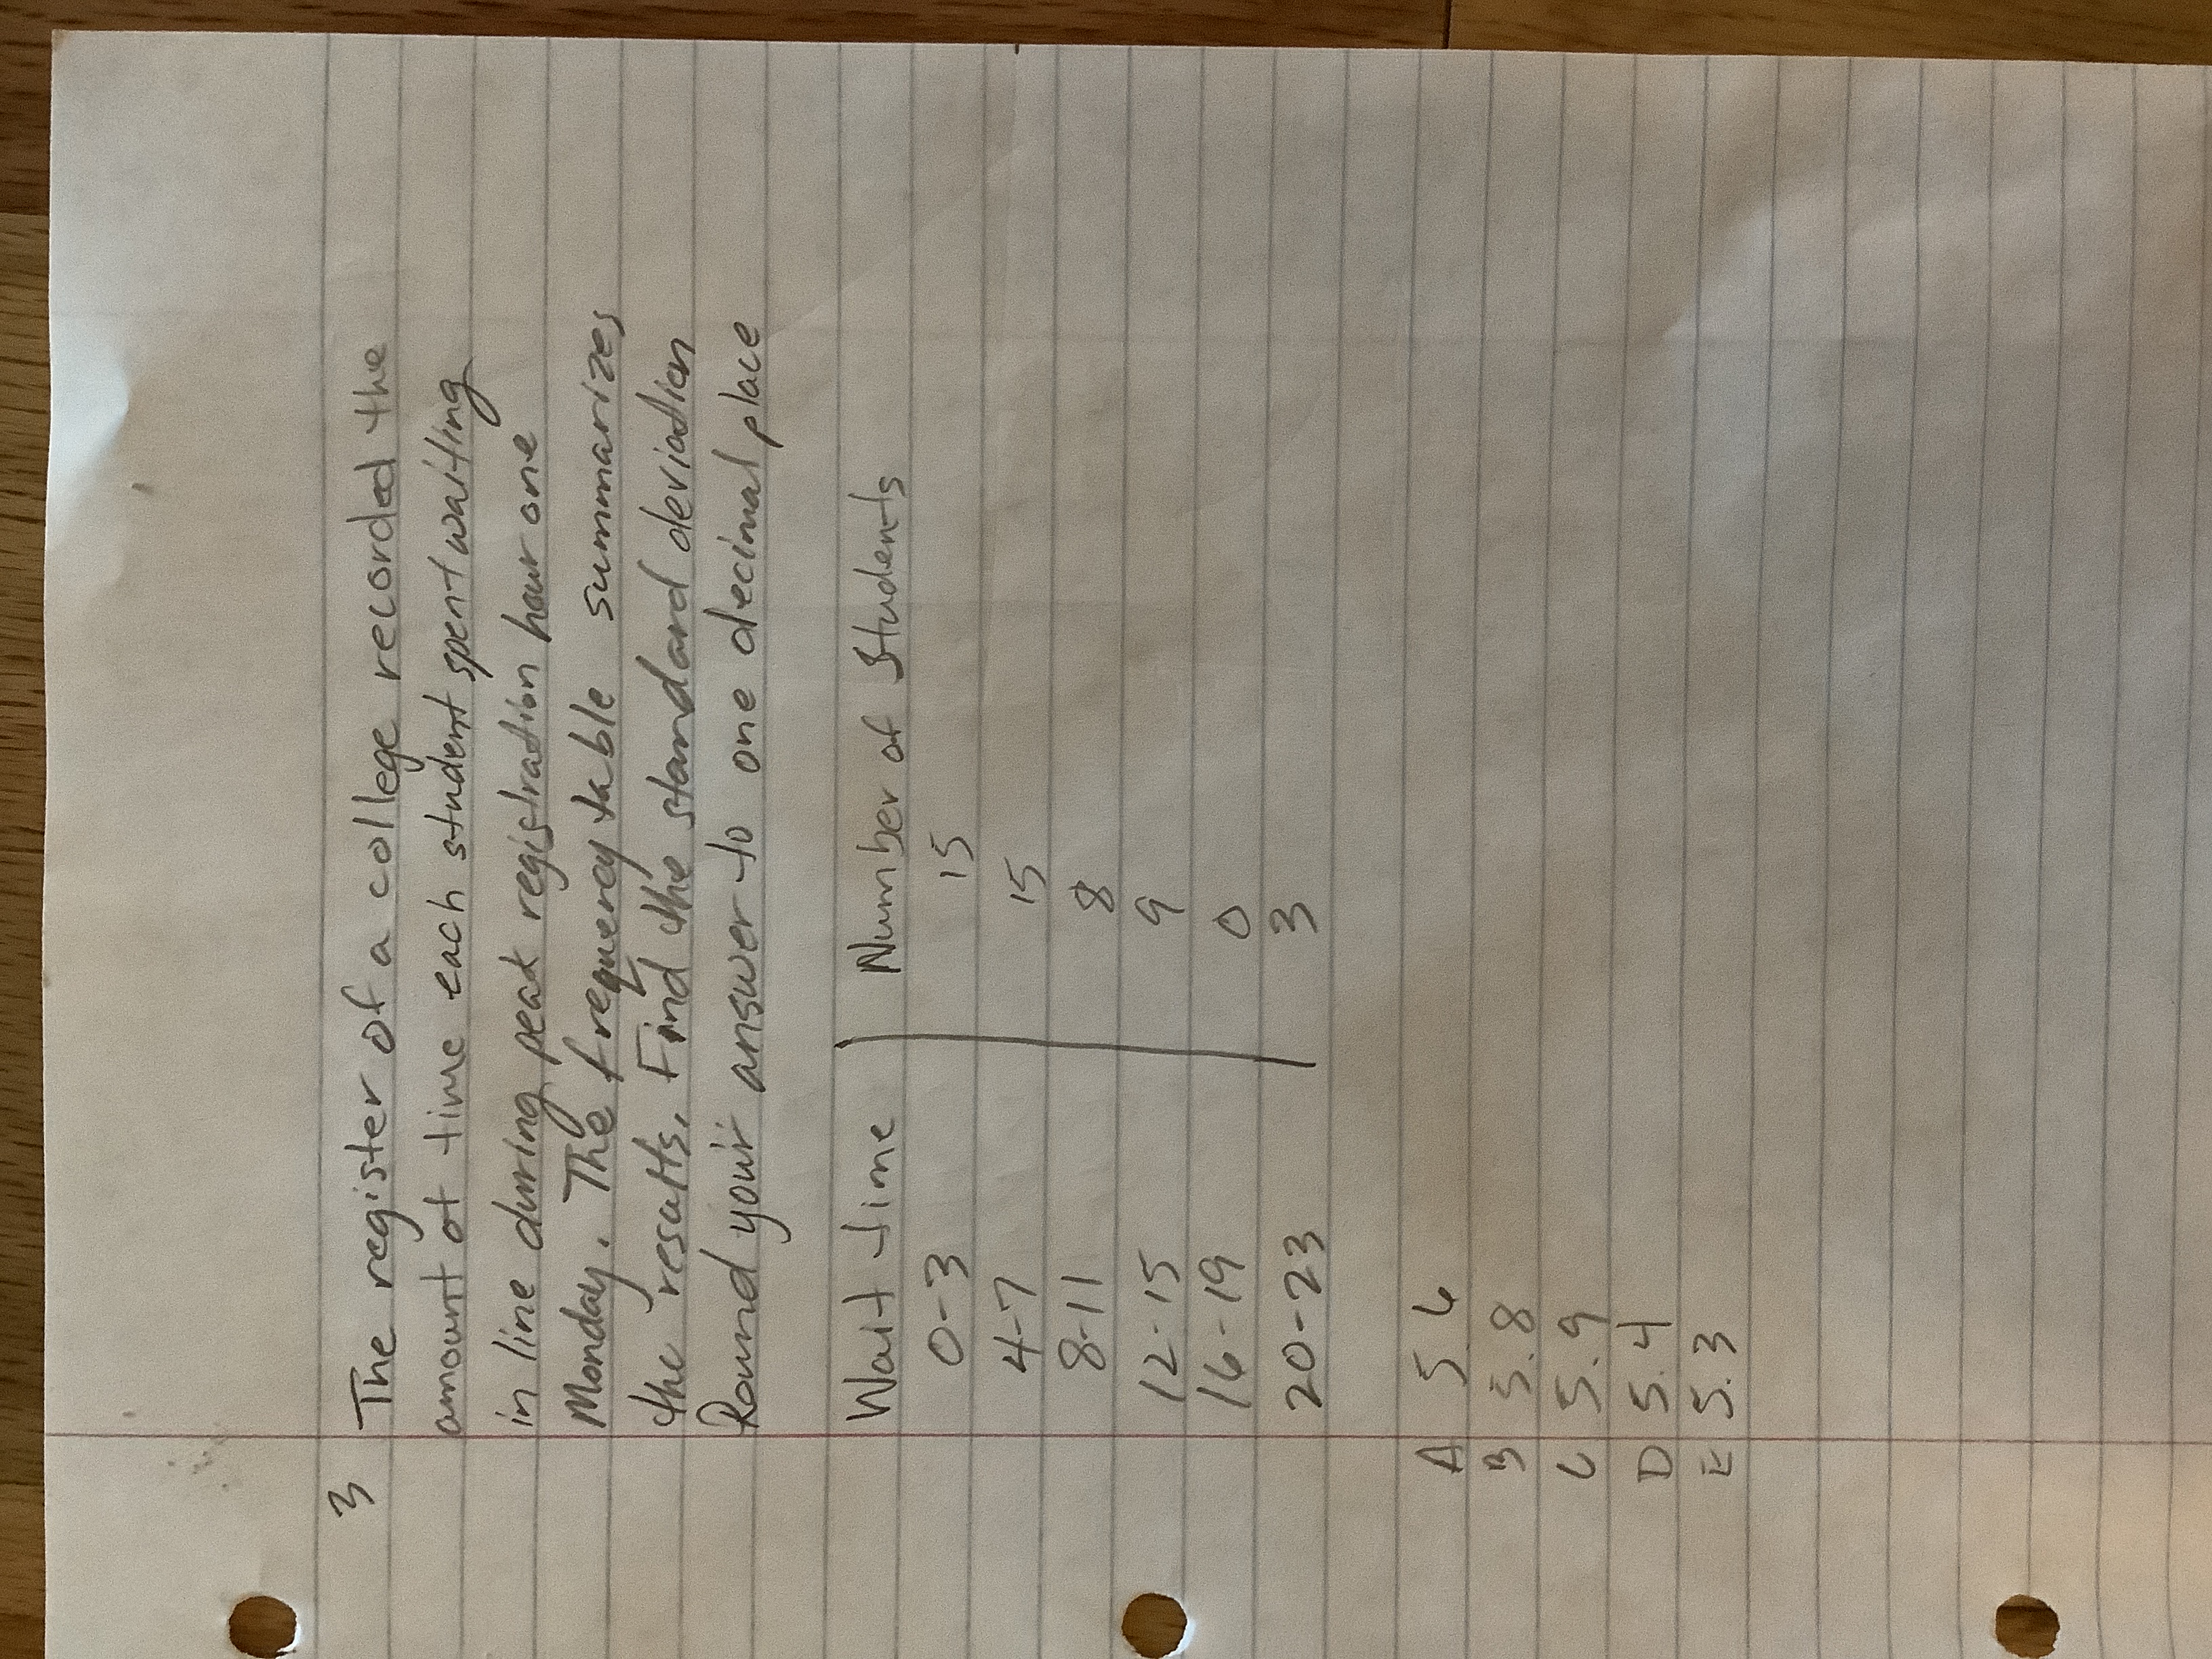 3 The register of a college recorded the
amount of time each student spent waiting
in line during peak registration hour one
Monday. The frequency table summarizes
the results. Find the standard deviation
Round your answer to one decimal place
Wait time Number of Students
0-3 15
4-7 15
8-11 8
12-15 9
16-19 0
20-23 3
A 5.6
B 5.8
C 5.9
D 5.4
E 5.3